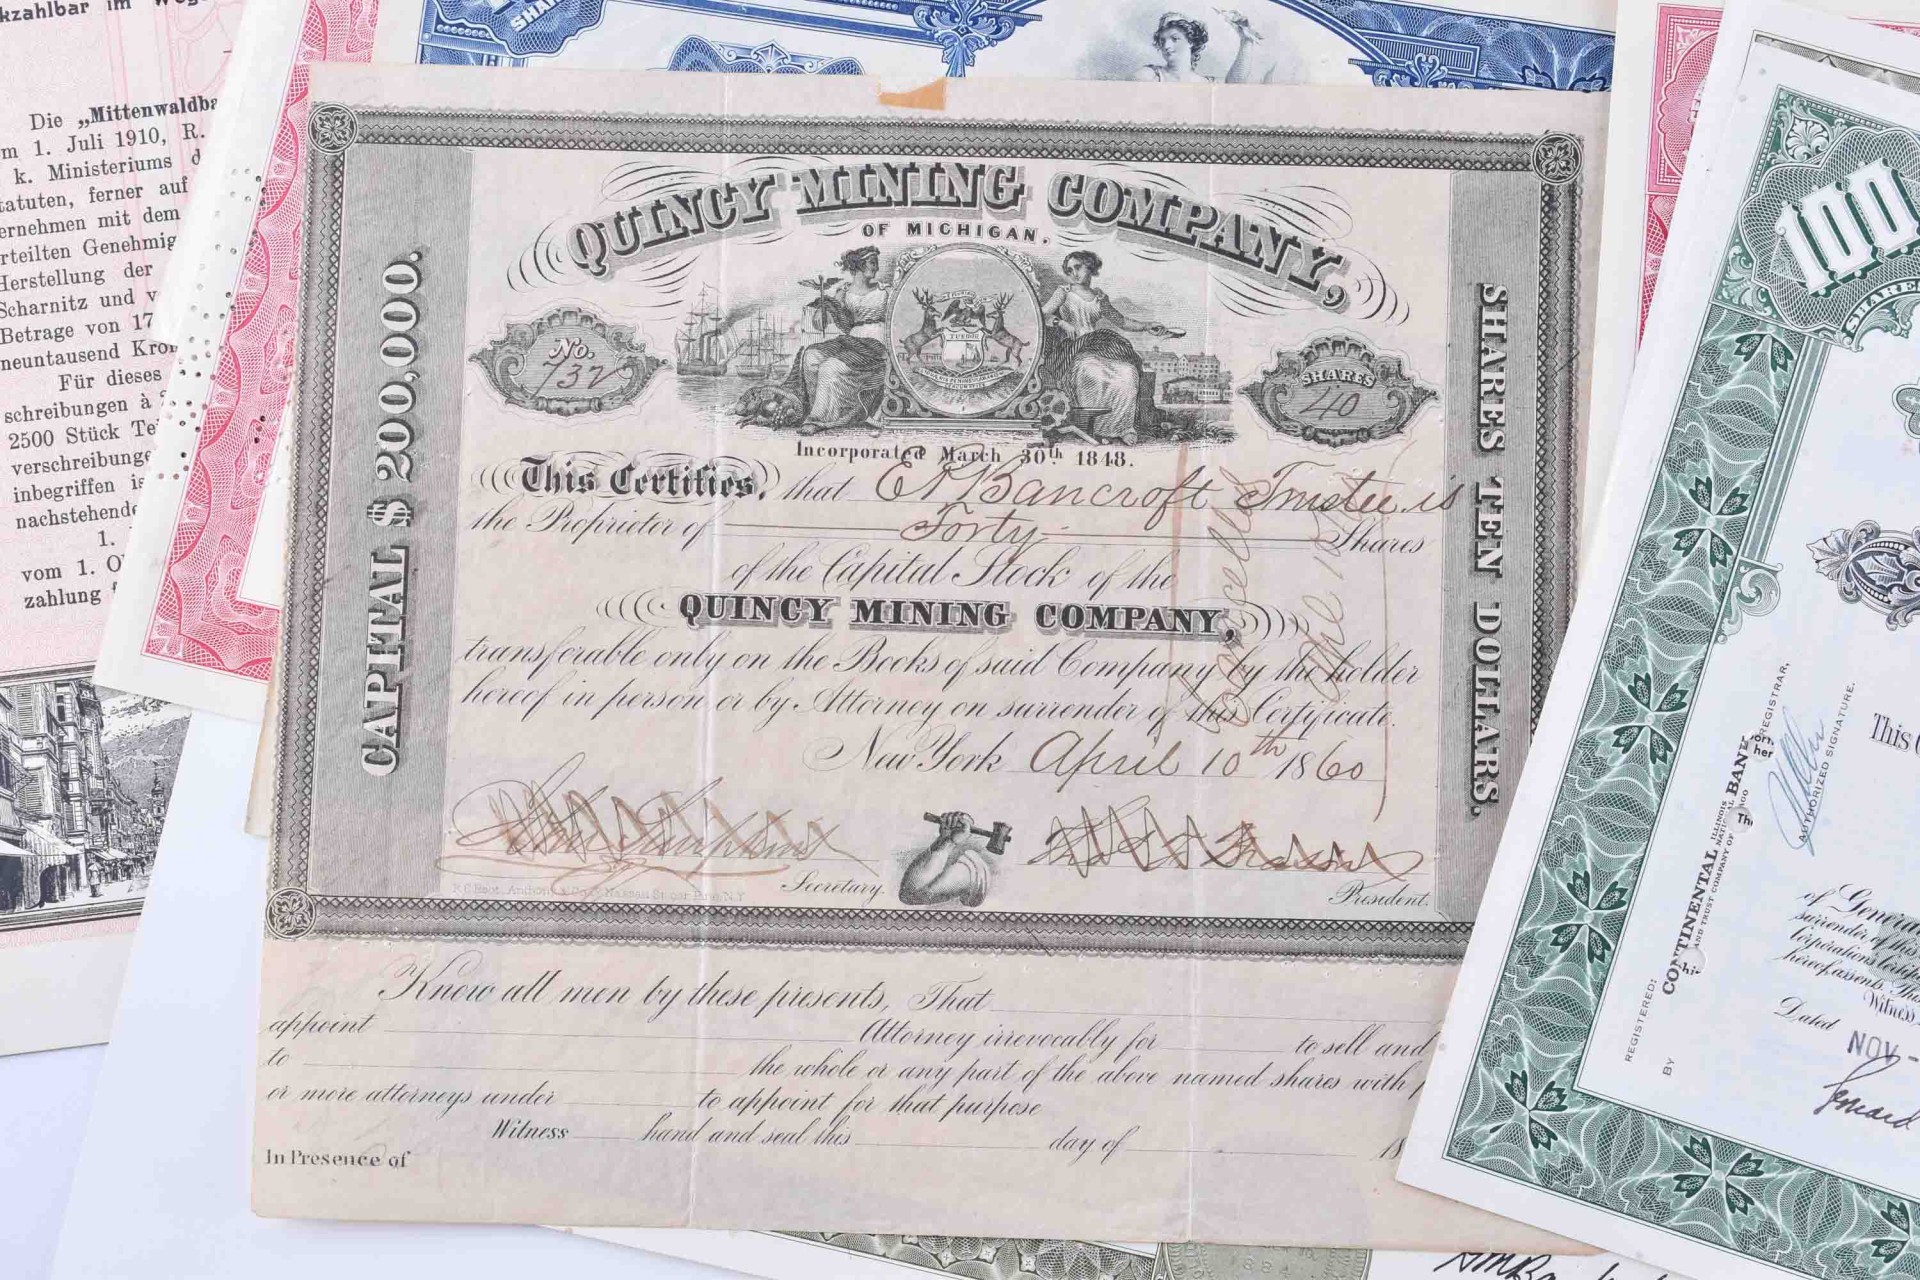 kzahlbar im
Die „Mittenwaldba
m 1. Juli 1910, R.
k. Ministeriums d
tatuten, ferner auf
ernehmen mit dem
rteilten Genehmig
Herstellung der
Scharnitz und v
Betrage von 17
neuntausend Kron
Für dieses
schreibungen à
2500 Stück Tei
verschreibunge
inbegriffen is
nachstehende
1.
vom 1. O
zahlung
QUINCY MINING COMPANY,
OF MICHIGAN.
CAPITAL $ 200,000.
SHARES TEN DOLLARS.
No.
737
TUEBOR
SHARES
40
Incorporated March 30th 1848.
This Certifies, that E A Bancroft Trustee is
the Proprietor of Forty Shares
of the Capital Stock of the
QUINCY MINING COMPANY,
transferable only on the Books of said Company by the holder
hereof in person or by Attorney on surrender of this Certificate.
Cancelled
New York April 10th 1860
Secretary.
President.
Know all men by these presents, That
appoint Attorney irrevocably for to sell and
to the whole or any part of the above named shares with
or more attorneys under to appoint for that purpose
Witness hand and seal this day of 18
In Presence of
100
SHARES
This C
REGISTERED:
CONTINENTAL ILLINOIS NATIONAL BANK
AND TRUST COMPANY OF CHICAGO
REGISTRAR,
BY
AUTHORIZED SIGNATURE.
of General
surrender of this
Corporations Certifi
hereof assents. This
Witness
Dated NOV -